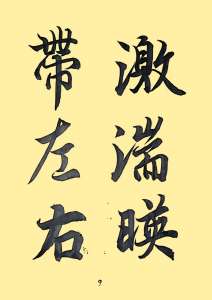 激湍暎
帶左右
9